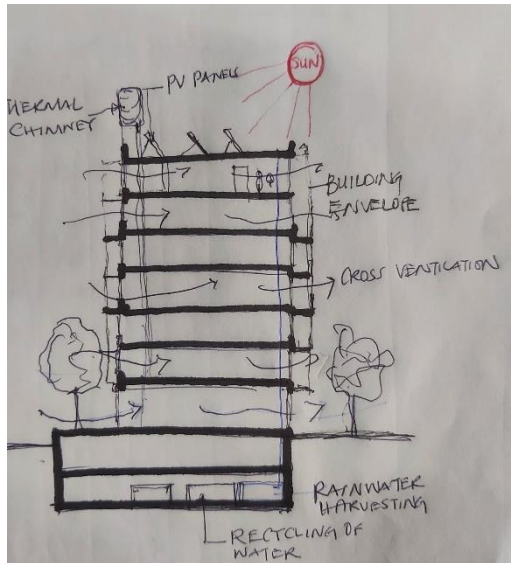 SUN
PV PANELS
THERMAL
CHIMNEY
BUILDING
ENVELOPE
CROSS VENTILATION
RAINWATER
HARVESTING
RECYCLING OF
WATER